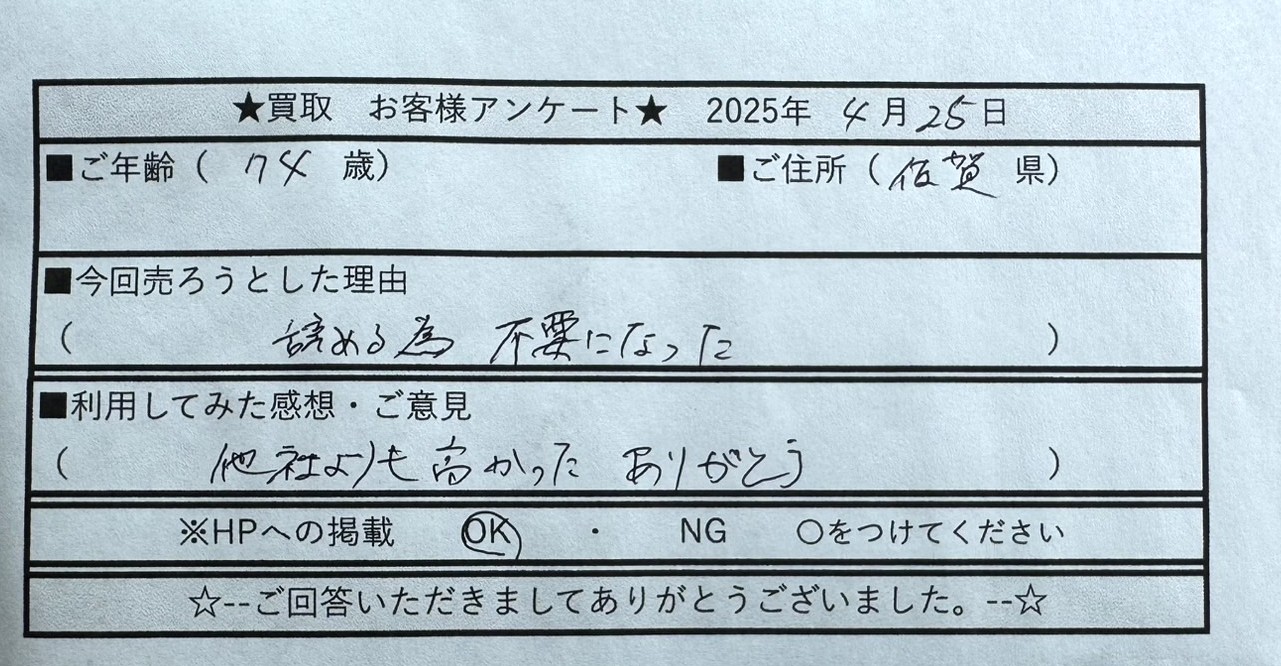 ★買取　お客様アンケート★　2025年 4月25日
■ご年齢（ 74 歳）　■ご住所（ 佐賀 県）
■今回売ろうとした理由
（ 辞める為 不要になった ）
■利用してみた感想・ご意見
（ 他社よりも高かった ありがとう ）
※HPへの掲載　OK　・　NG　〇をつけてください
☆--ご回答いただきましてありがとうございました。--☆